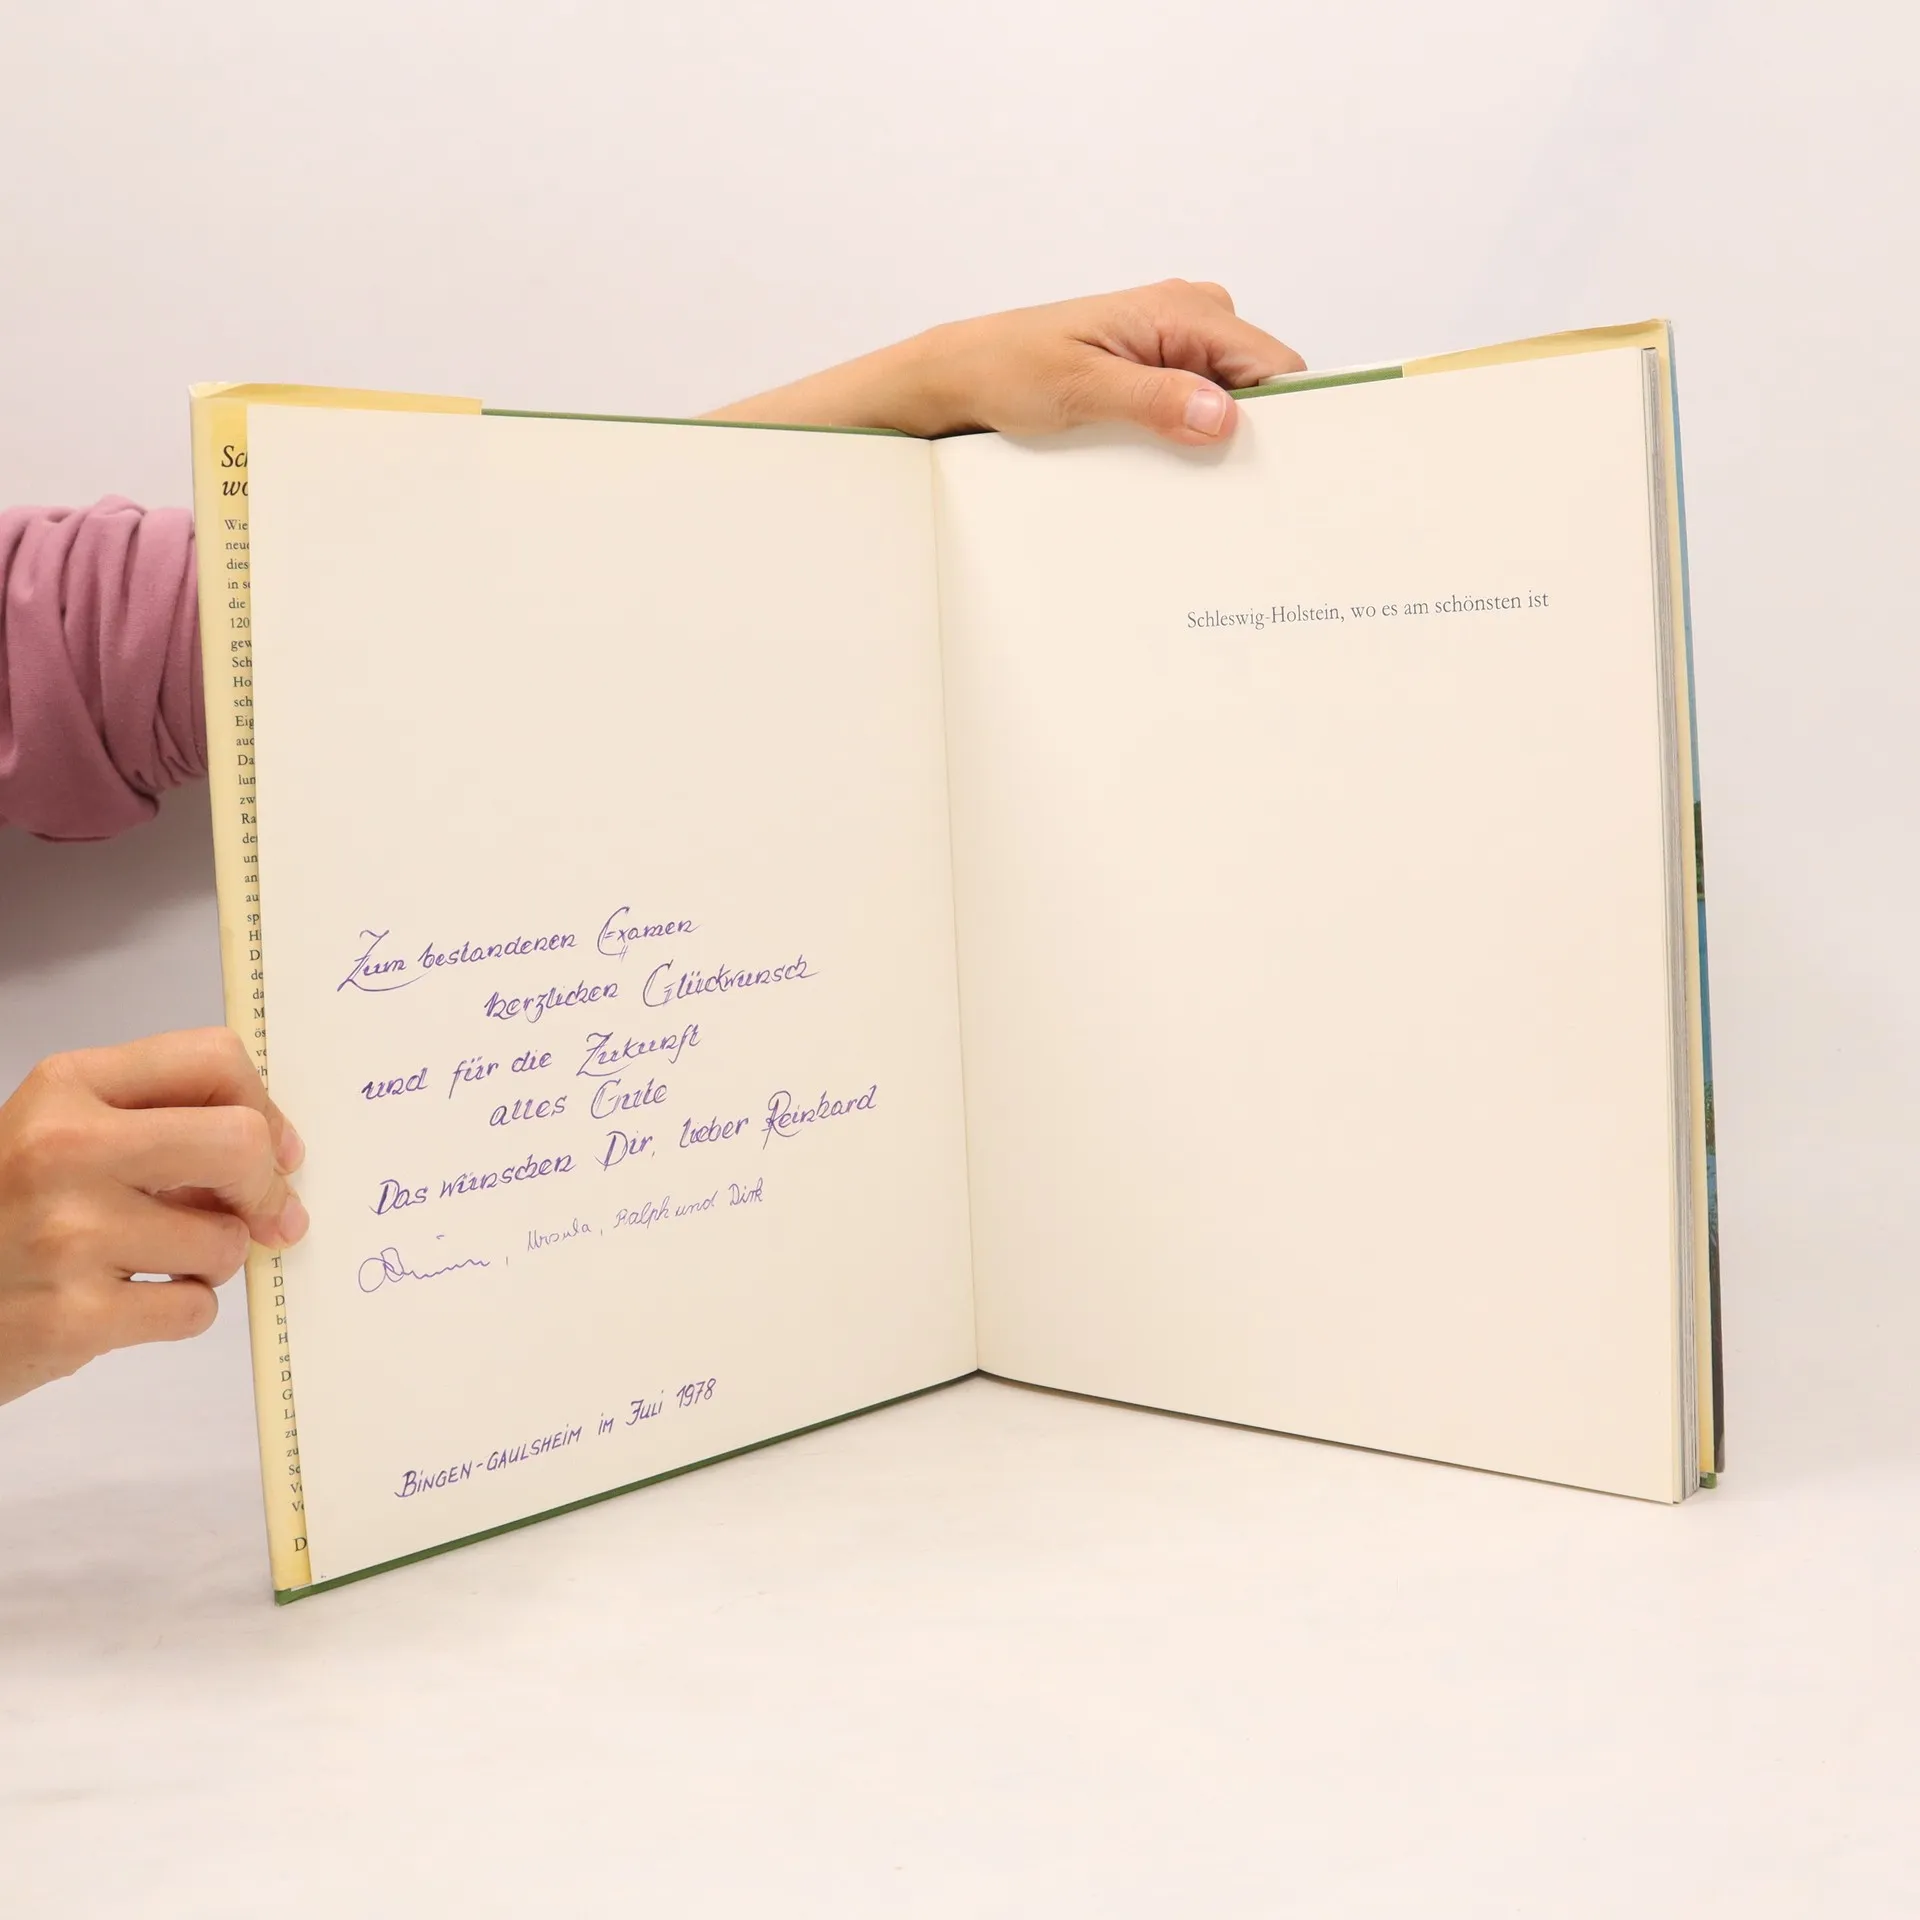 Wie
neue
dies
in se
die
120
gew
Sch
Ho
sch
Eig
auc
Da
lun
zw
Ra
der
un
an
au
sp
Zum bestandenen Examen
herzlichen Glückwunsch
und für die Zukunft
alles Gute
Das wünschen Dir, lieber Reinhard
, Ursula, Ralph und Dirk
BiNGEN-GAULSHEiM iM Juli 1978
Schleswig-Holstein, wo es am schönsten ist